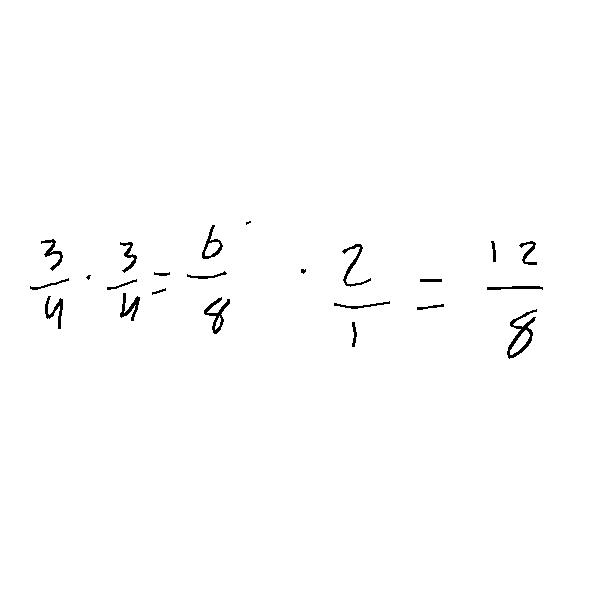 3/4 · 3/4 = 6/8 · 2/1 = 12/8